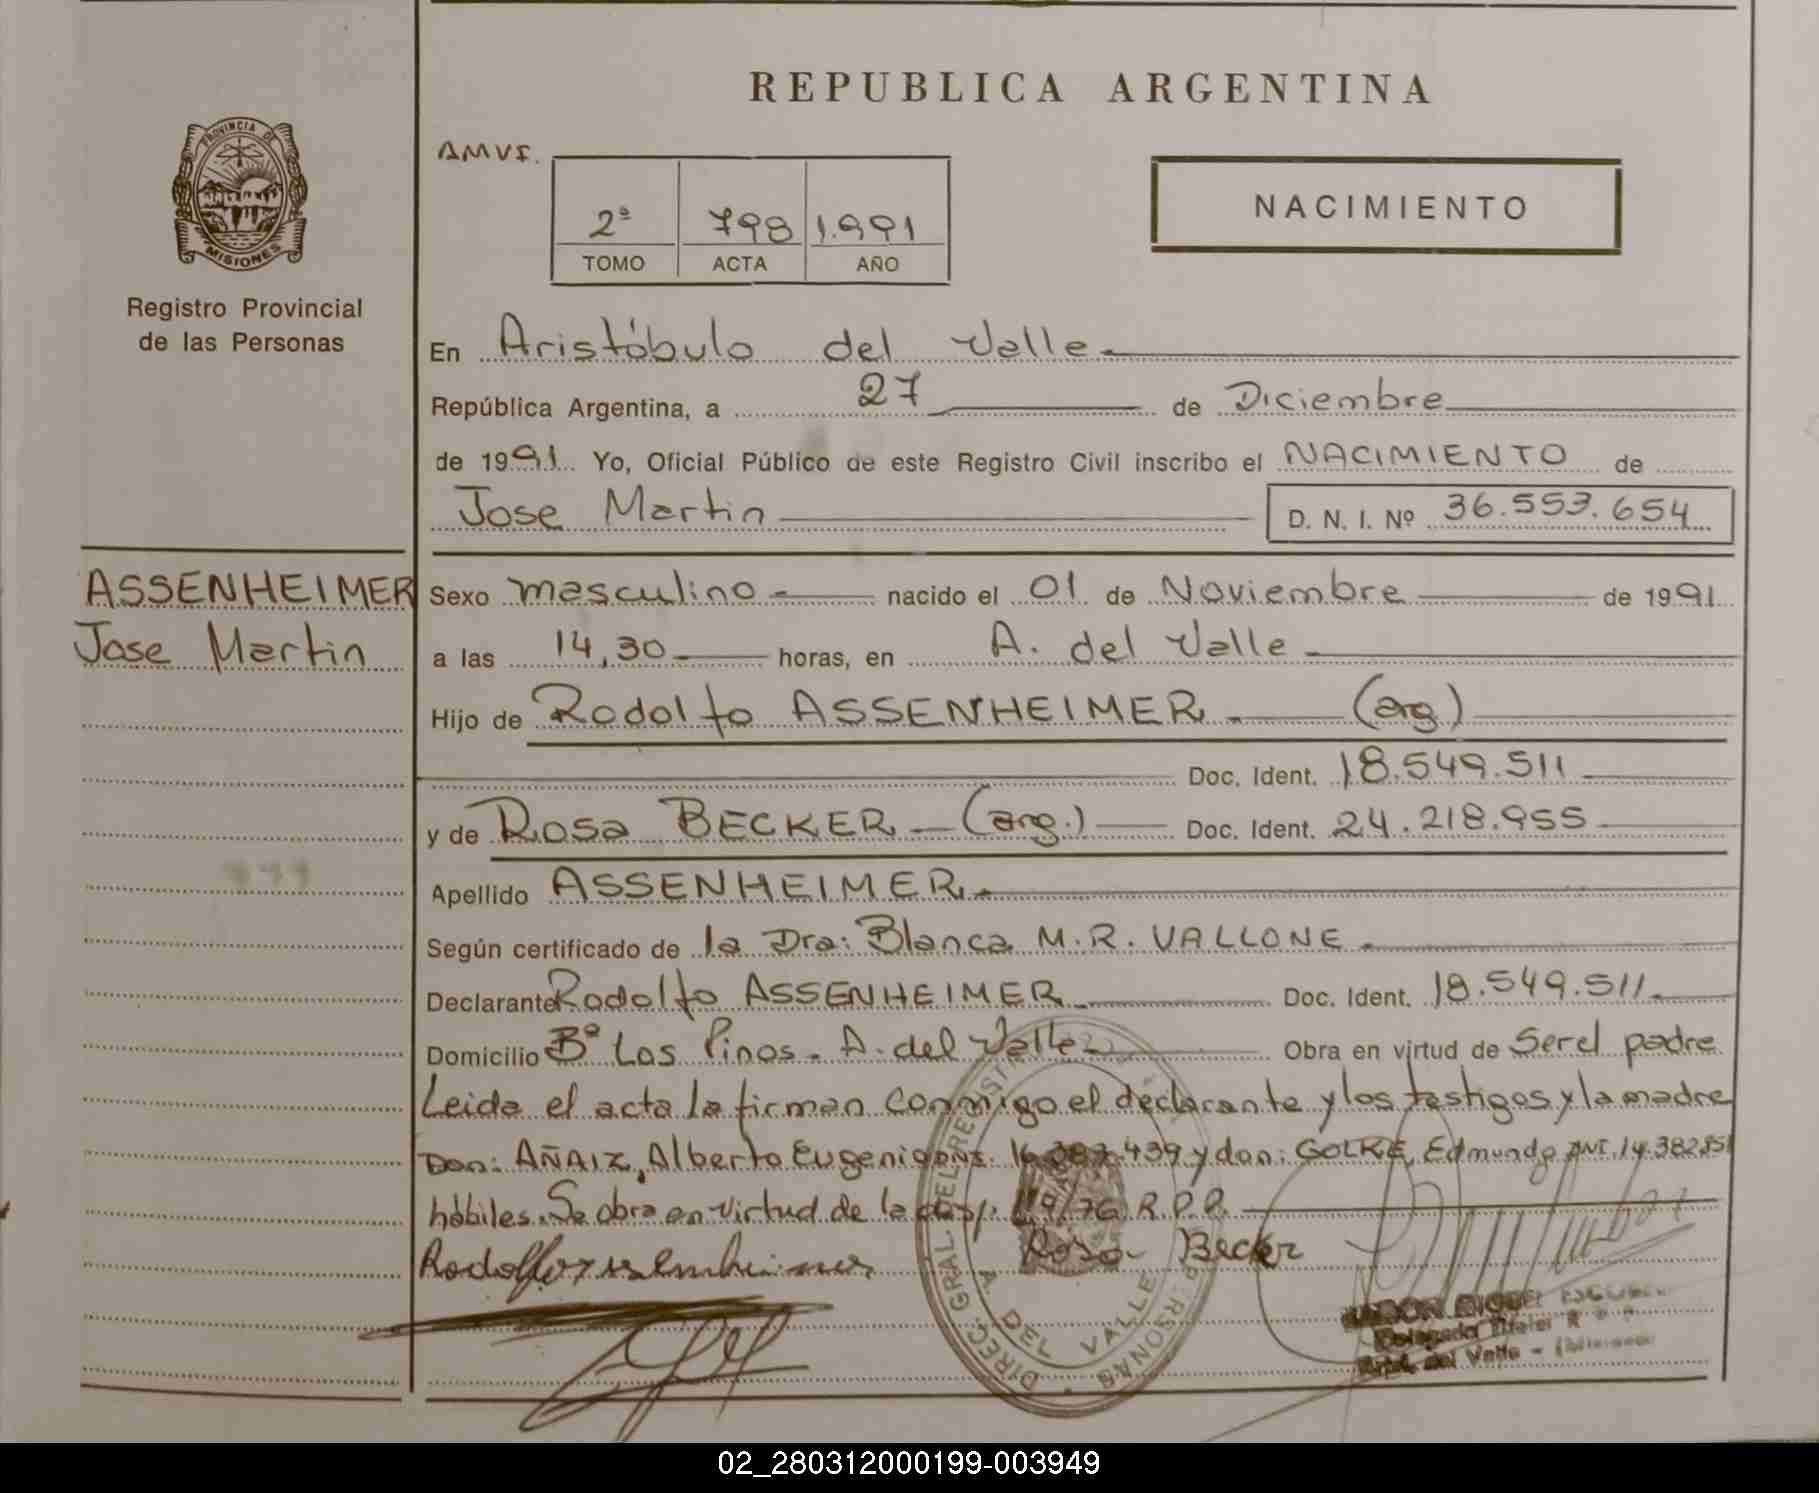 REPUBLICA ARGENTINA
PROVINCIA DE
MISIONES
Registro Provincial
de las Personas
AMVI.
2ª 798 1.991
TOMO ACTA AÑO
NACIMIENTO
En Aristóbulo del Valle
República Argentina, a 27 de Diciembre
de 1991. Yo, Oficial Público de este Registro Civil inscribo el NACIMIENTO de
Jose Martin D. N. I. Nº 36.553.654
ASSENHEIMER
Jose Martin
Sexo masculino nacido el 01 de Noviembre de 1991
a las 14,30 horas, en A. del Valle
Hijo de Rodolfo ASSENHEIMER. (arg)
Doc. Ident. 18.549.511
y de Rosa BECKER (arg.) Doc. Ident. 24.218.955
Apellido ASSENHEIMER.
Según certificado de la Dra: Blanca M.R. VALLONE.
Declarante Rodolfo ASSENHEIMER Doc. Ident. 18.549.511.
Domicilio Bº Los Pinos. A. del Valle Obra en virtud de Ser el padre
Leida el acta la firman conmigo el declarante y los testigos y la madre
Don: AÑAIZ, Alberto Eugenio DNI. 439 y don: GOLKE, Edmundo DNI. 14.382.851
hábiles. Se obra en virtud de la disp. 119/76 R.P.P.
Rodolfo Assenheimer Rosa Becker
DIREC. GRAL DEL REGISTR PERSONAS
A DEL VALLE
02_280312000199-003949